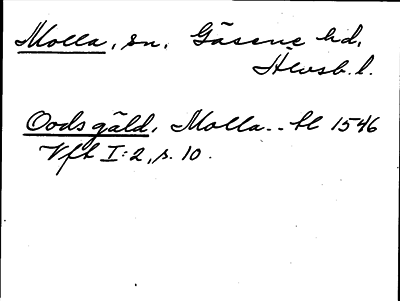 Molla, sn, Gäsene hd,
Älvsb. l.
Ods gäld, Molla.. bl 1546
Vfb I:2, s. 10.